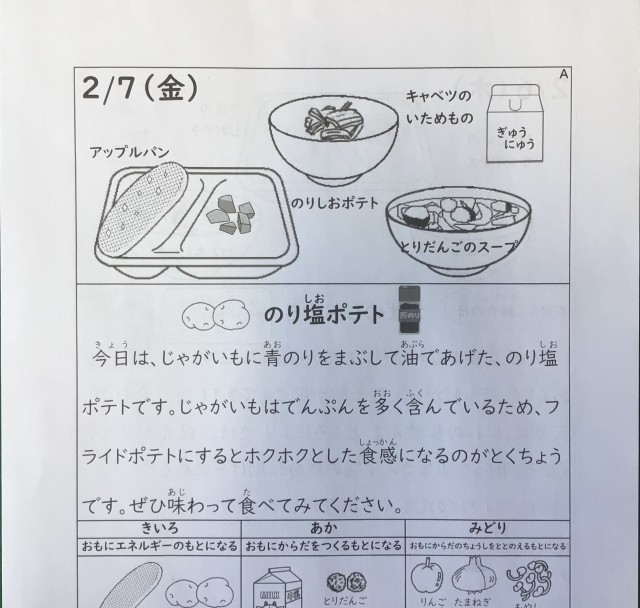 A
2/7(金)
キャベツの
いためもの
ぎゅう
にゅう
アップルパン
のりしおポテト
とりだんごのスープ
のり塩ポテト
しお
青のり
今日は、じゃがいもに青のりをまぶして油であげた、のり塩
きょう
あお
あぶら
しお
ポテトです。じゃがいもはでんぷんを多く含んでいるため、フ
おお
ふく
ライドポテトにするとホクホクとした食感になるのがとくちょう
しょっかん
です。ぜひ味わって食べてみてください。
あじ
た
きいろ
あか
みどり
おもにエネルギーのもとになる
おもにからだをつくるもとになる
おもにからだのちょうしをととのえるもとになる
MILK
とりだんご
りんご
たまねぎ
もやし